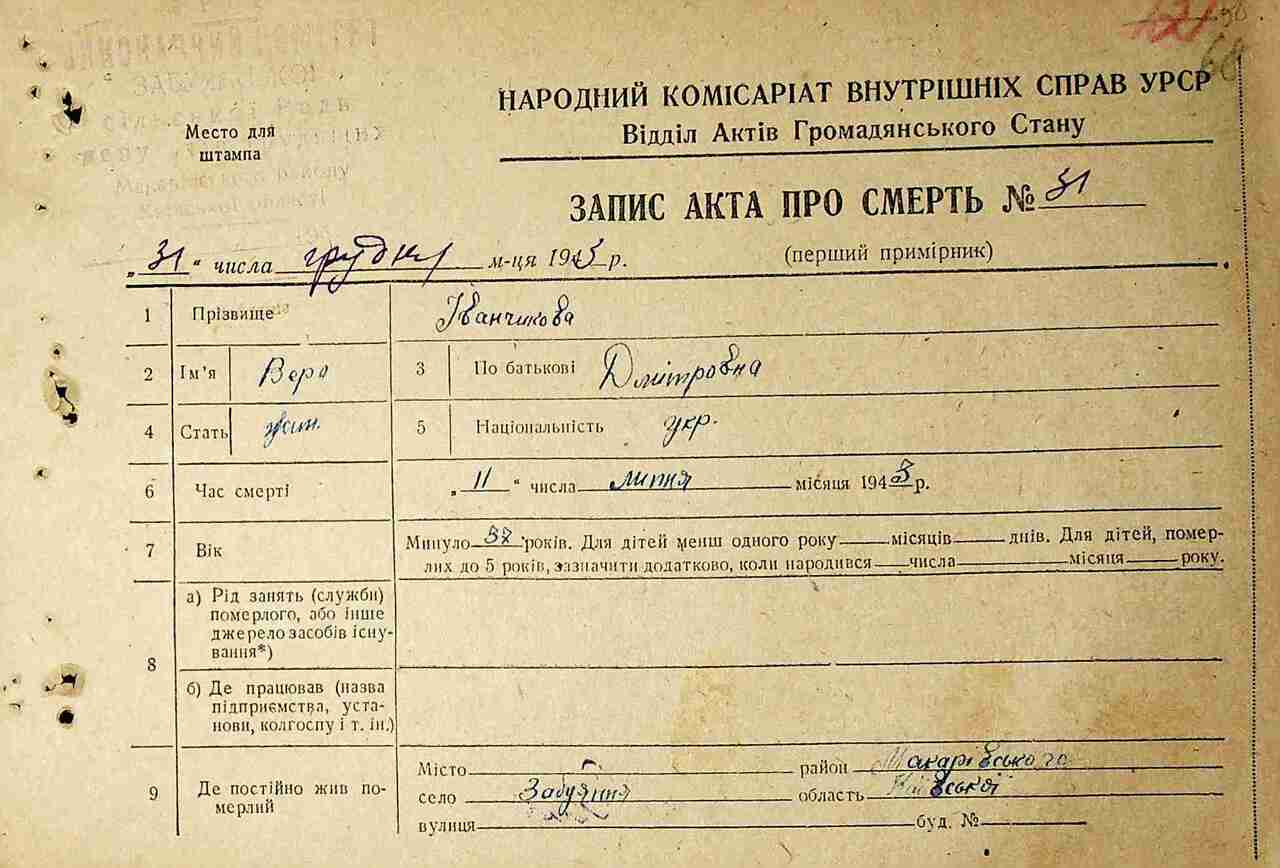 68
НАРОДНИЙ КОМІСАРІАТ ВНУТРІШНІХ СПРАВ УРСР
Відділ Актів Громадянського Стану
Место для
штампа
Макарівського району
Київської області
ЗАПИС АКТА ПРО СМЕРТЬ № 31
„31“ числа грудня м-ця 1943 р.
(перший примірник)
1 Прізвище Іванчикова
2 Ім’я Вера 3 По батькові Дмітровна
4 Стать жін. 5 Національність укр.
6 Час смерті „11“ числа липня місяця 1943 р.
7 Вік Минуло 37 років. Для дітей менш одного року місяців днів. Для дітей, помер-
лих до 5 років, зазначити додатково, коли народився числа місяця року.
8 а) Рід занять (служби)
померлого, або інше
джерело засобів існу-
вання*)
б) Де працював (назва
підприємства, уста-
нови, колгоспу і т. ін.)
9 Де постійно жив по-
мерлий
Місто — район Макарівського
село Забуяння область Київської
вулиця буд. №